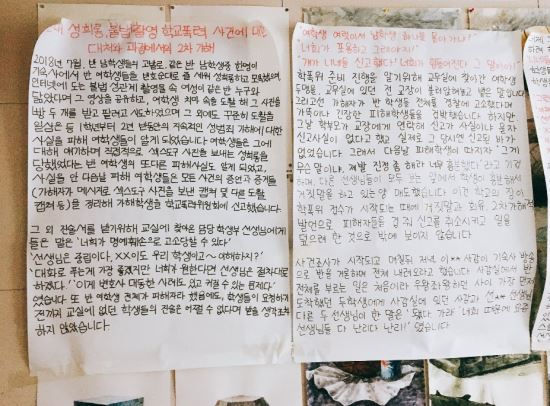 성희롱, 불법촬영 학교폭력 사건에 대한
대처와 과정에서의 2차 가해
2018년 7월, 반 남학생들과 고백로, 같은 반 남학생중 한명이
기숙사에서 반 여학생들을 번호순대로 줄 세워 성희롱하고 모욕했으며,
인터넷에 도는 불법 성관계 촬영물 속 여성이 같은 반 누구와
닮았다며 그 영상을 공유하고, 여학생 치마 속을 도촬 해 그 사진을
두 개를 받고 팔려고 시도하였으며 그 외에도 꾸준히 도촬을
일삼은 등 1학년부터 2년 반동안의 지속적인 성범죄 가해에 대한
사실을 피해 여학생들이 알게 되었습니다. 여학생들은 그에
대해 얘기하며 직접적으로 섹스도구 사진을 보내는 성희롱을
당했었다는 반 여학생의 또다른 피해사실도 알게 되었고,
사실을 안 다음날 피해 여학생들은 모든 사건의 증언과 증거들
(가해자가 메시지로 섹스도구 사진을 보낸 캡쳐 및 다른 도촬
캡쳐 등)을 정리해 가해학생을 학교폭력위원회에 신고했습니다.
그 외 진술서를 받기위해 교실에 찾아온 담당 학생부 선생님에게
들은 말은 '너희가 명예훼손으로 고소당할 수 있다'
'선생님은 중립이다, XX이도 우리 학생이고~ 이해하지?'
'대화로 푸는게 가장 좋겠지만 너희가 원한다면 선생님은 절차대로
하겠다.' '이게 변호사 대동한 사례도 있고 커질 수 있는 문제다.'
였습니다 또 반 여학생 전체가 피해자라 했음에도, 학생들이 요청하기
전까지 교실에 없던 학생들의 진술은 어쩔 수 없다며 받을 생각조차
하지 않았습니다.
"여학생 여럿이서 남학생 하나를 몰아가냐!"
"너희가 포용하고 그래야지!"
"걔가 너네들 신고했다! 너희가 힘들어진다 그 말이야!"
학폭위 준비 진행을 알기위해 교무실에 찾아간 여학생
두명을, 교무실에 있던 전 교장이 불러앉혀놓고 뱉은 말입니다.
그리고선 가해자가 반 학생들 전체를 경찰에 고소했다며
가뜩이나 긴장한 피해학생들을 겁박했습니다. 하지만
그날 학부모가 교장에게 연락하니 신고가 사실이냐 묻자
신고사실이 없다고 했고 실제로 그 당시엔 신고된 바가
없었습니다. 그래서 다음날 피해학생이 따지자 "그게
무슨 말이냐. 제발 진정 좀 해라 너무 흥분했다"라고 기만
하며, 다른 선생님들이 모두 보는 앞에서 학생이 흥분해서
거짓말을 하고 있는 양 매도했습니다. 이건 학교의 장이
학폭위 접수가 시작되는 때에 거짓말과 회유, 2차가해적
발언으로 피해자들을 겁 주어 신고를 취소시키고 일을
덮으려 한 것으로 밖에 보이지 않습니다.
사건조사가 시작되고 며칠뒤 저녁 이** 사감이 기숙사 방송
으로 반을 거론하며 전체 내려오라고 했습니다 사감실에서 반
전체를 부르는 일은 처음이라 우왕좌왕하던 사이 가장 먼저
도착했던 두학생에게 사감실에 있던 사감과 선** 선생님
다른 두 선생님이 한 말은 '됐다 가라' '너희 때문에 요즘
선생님들 다 난리다 난리!' 였습니다